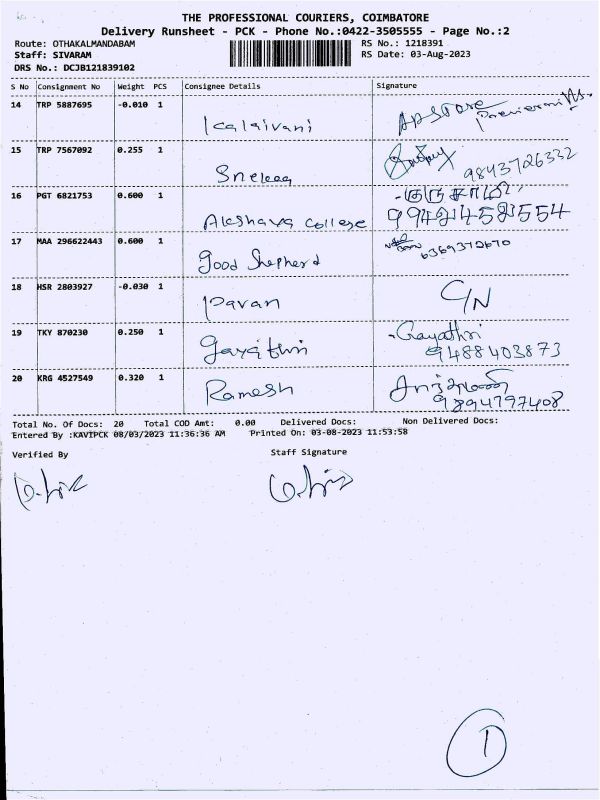 THE PROFESSIONAL COURIERS, COIMBATORE
Delivery Runsheet - PCK - Phone No.:0422-3505555 - Page No.:2
Route: OTHAKALMANDABAM RS No.: 1218391
Staff: SIVARAM RS Date: 03-Aug-2023
DRS No.: DCJB121839102
S No Consignment No Weight PCS Consignee Details Signature
14 TRP 5887695 -0.010 1 Kalaivani
15 TRP 7567092 0.255 1 9843726332
16 PGT 6821753 0.600 1 Akshaya College குருசாமி
9942458554
17 MAA 296622443 0.600 1 Good Shepherd 6369372670
18 HSR 2803927 -0.030 1 Pavan C/N
19 TKY 870230 0.250 1 Gayathri Gayathri
9488403873
20 KRG 4527549 0.320 1 Ramesh
9894797408
Total No. Of Docs: 20 Total COD Amt: 0.00 Delivered Docs: Non Delivered Docs:
Entered By :KAVIPCK 08/03/2023 11:36:36 AM Printed On: 03-08-2023 11:53:58
Verified By Staff Signature
1